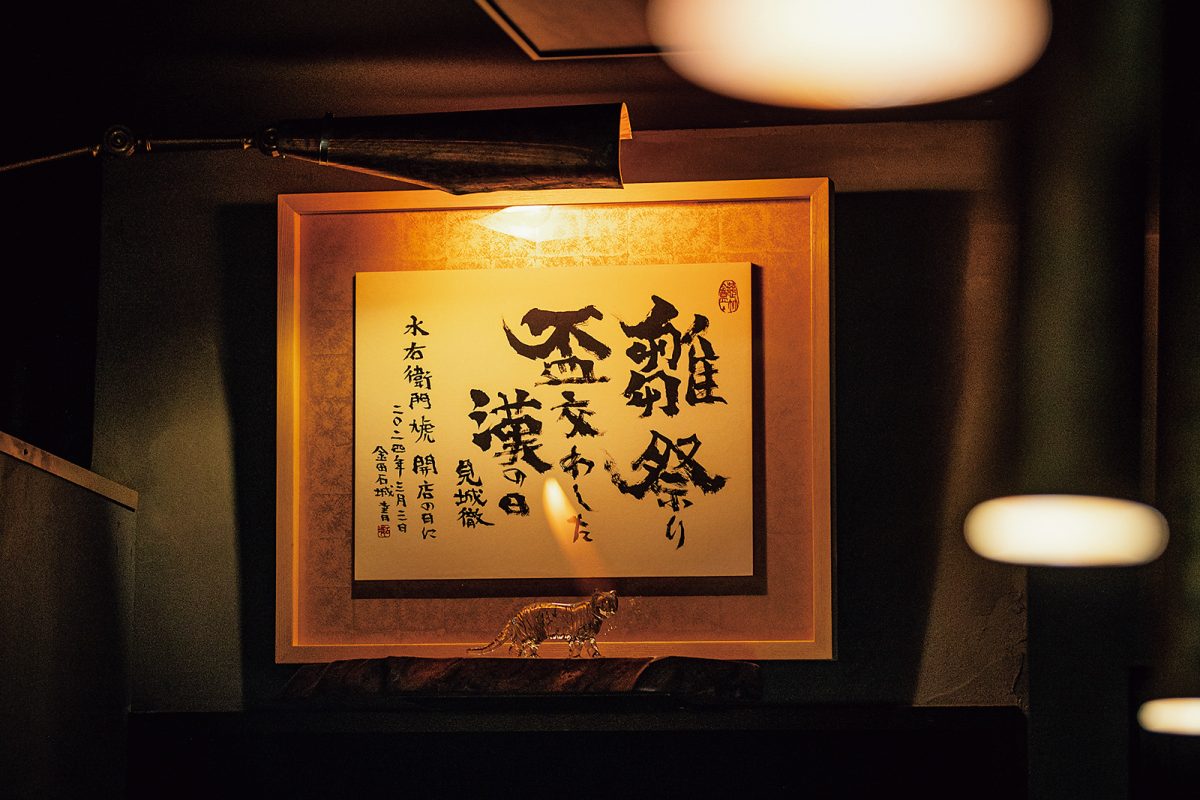 雛祭り
盃交わした
漢の日
見城徹
水右衛門 虎 開店の日に
二〇二四年三月三日
金田石城 書